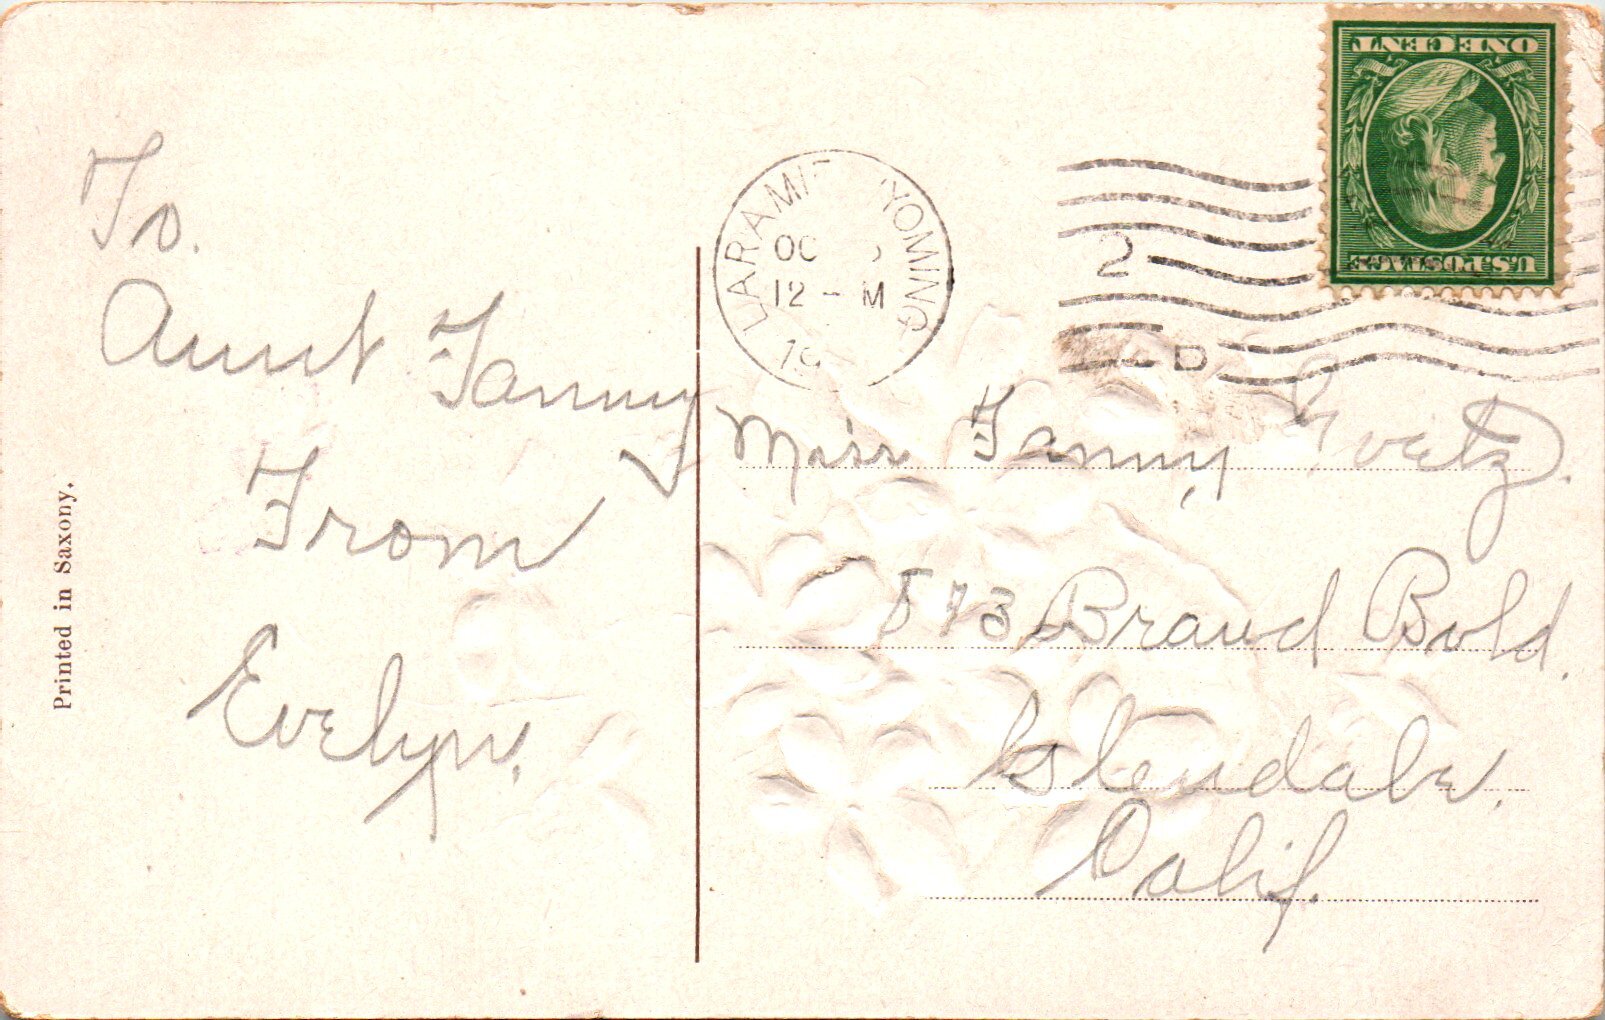 To.
Aunt Fanny
From
Evelyn.
Printed in Saxony.
LARAMIE WYOMING
OC
12 - M
19
2
D
U.S. POSTAGE
ONE CENT
Miss Fanny Goetz.
573 Brand Bold.
Glendale.
Calif.